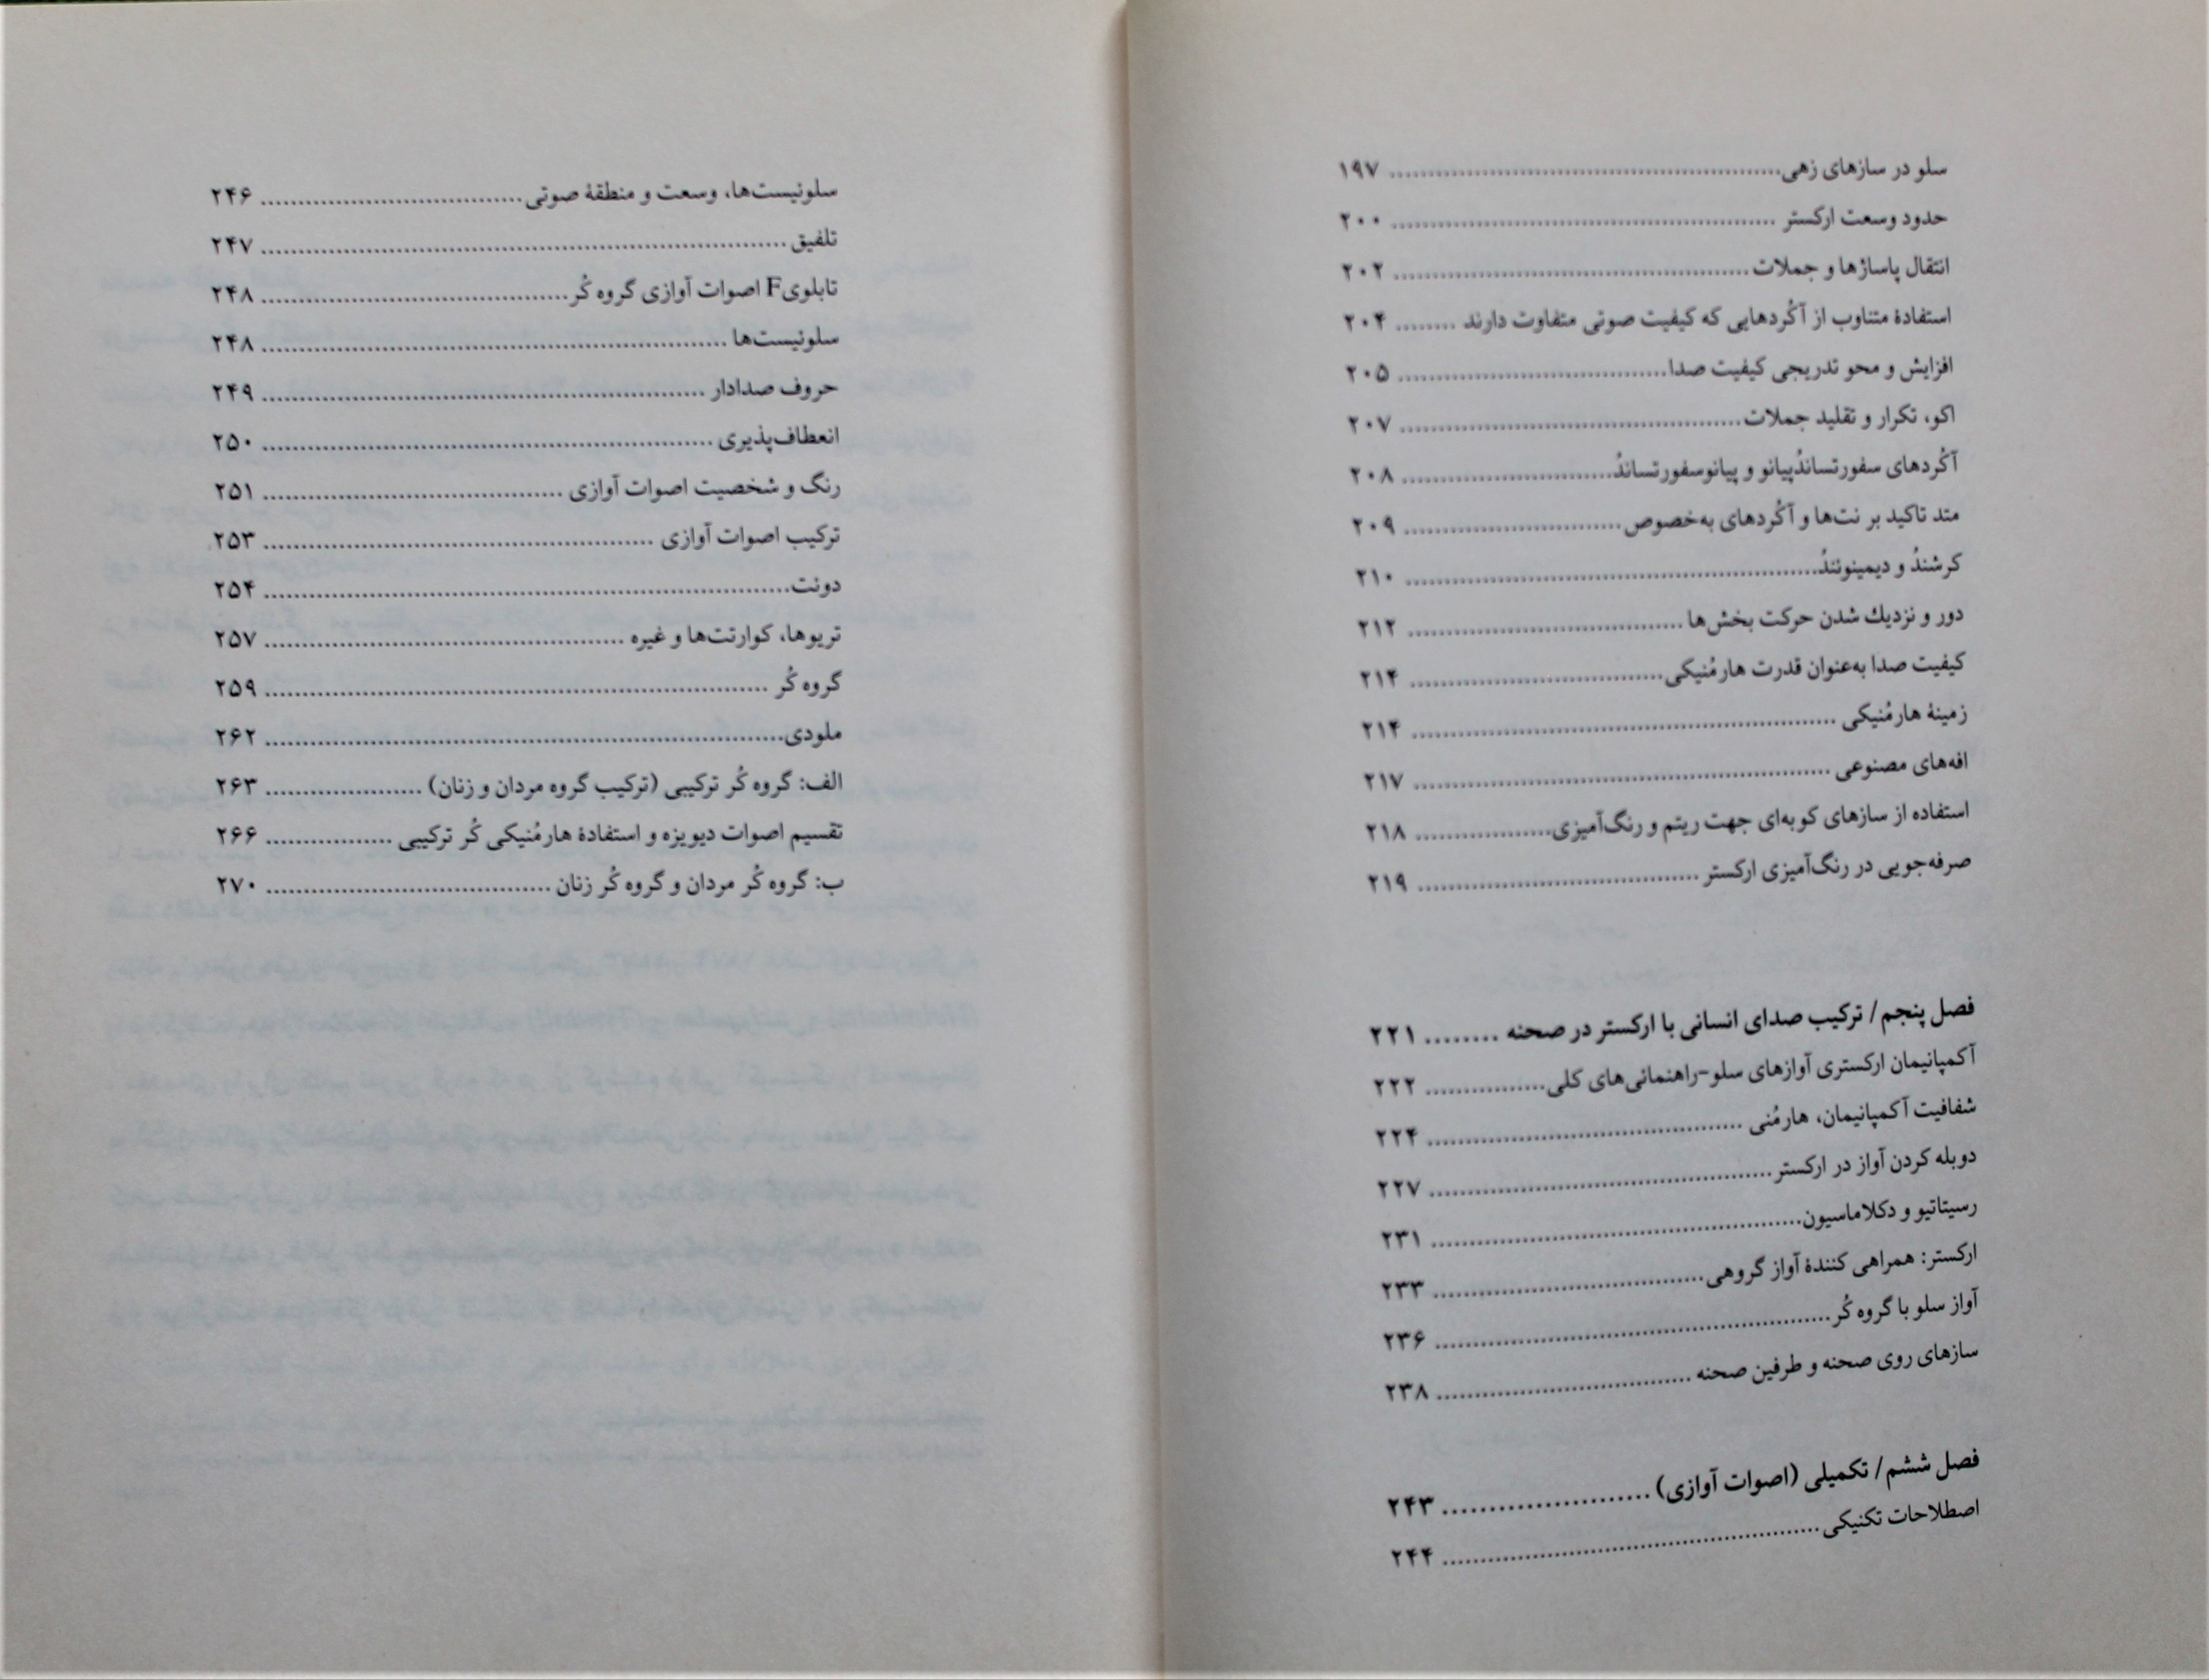 سلو در سازهای زهی ........ ۱۹۷
حدود وسعت ارکستر ........ ۲۰۰
انتقال پاساژها و جملات ........ ۲۰۲
استفادهٔ متناوب از آکُردهایی که کیفیت صوتی متفاوت دارند ........ ۲۰۴
افزایش و محو تدریجی کیفیت صدا ........ ۲۰۵
اکو، تکرار و تقلید جملات ........ ۲۰۷
آکُردهای سفورتساندُپیانو و پیانوسفورتساندُ ........ ۲۰۸
متد تاکید بر نت‌ها و آکُردهای به‌خصوص ........ ۲۰۹
کرشندُ و دیمینوئندُ ........ ۲۱۰
دور و نزدیك شدن حرکت بخش‌ها ........ ۲۱۲
کیفیت صدا به‌عنوان قدرت هارمُنیکی ........ ۲۱۴
زمینهٔ هارمُنیکی ........ ۲۱۴
افه‌های مصنوعی ........ ۲۱۷
استفاده از سازهای کوبه‌ای جهت ریتم و رنگ‌آمیزی ........ ۲۱۸
صرفه‌جویی در رنگ‌آمیزی ارکستر ........ ۲۱۹
فصل پنجم/ ترکیب صدای انسانی با ارکستر در صحنه ........ ۲۲۱
آکمپانیمان ارکستری آوازهای سلو-راهنمانی‌های کلی ........ ۲۲۲
شفافیت آکمپانیمان، هارمُنی ........ ۲۲۴
دوبله کردن آواز در ارکستر ........ ۲۲۷
رسیتاتیو و دکلاماسیون ........ ۲۳۱
ارکستر: همراهی کنندهٔ آواز گروهی ........ ۲۳۳
آواز سلو با گروه کُر ........ ۲۳۶
سازهای روی صحنه و طرفین صحنه ........ ۲۳۸
فصل ششم/ تکمیلی (اصوات آوازی) ........ ۲۴۳
اصطلاحات تکنیکی ........ ۲۴۴
سلونیست‌ها، وسعت و منطقهٔ صوتی ........ ۲۴۶
تلفیق ........ ۲۴۷
تابلویF اصوات آوازی گروه کُر ........ ۲۴۸
سلونیست‌ها ........ ۲۴۸
حروف صدادار ........ ۲۴۹
انعطاف‌پذیری ........ ۲۵۰
رنگ و شخصیت اصوات آوازی ........ ۲۵۱
ترکیب اصوات آوازی ........ ۲۵۳
دونت ........ ۲۵۴
تریوها، کوارتت‌ها و غیره ........ ۲۵۷
گروه کُر ........ ۲۵۹
ملودی ........ ۲۶۲
الف: گروه کُر ترکیبی (ترکیب گروه مردان و زنان) ........ ۲۶۳
تقسیم اصوات دیویزه و استفادهٔ هارمُنیکی کُر ترکیبی ........ ۲۶۶
ب: گروه کُر مردان و گروه کُر زنان ........ ۲۷۰